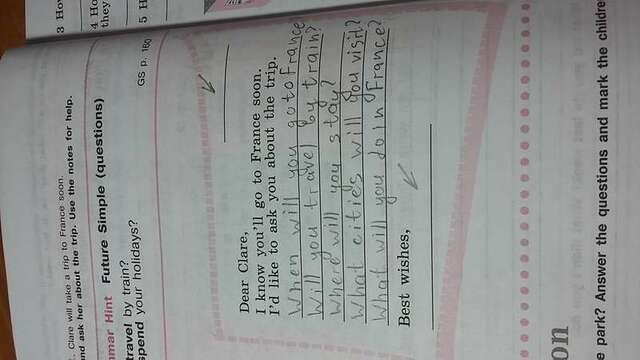 3 Ho
they
4 Ho
5 H
GS p. 160
Clare will take a trip to France soon.
nd ask her about the trip. Use the notes for help.
mmar Hint Future Simple (questions)
travel by train?
spend your holidays?
Dear Clare,
I know you'll go to France soon.
I'd like to ask you about the trip.
When will you go to France
Will you travel by train?
Where will you stay?
What cities will you visit?
What will you do in France?
Best wishes,
on
e park? Answer the questions and mark the childre